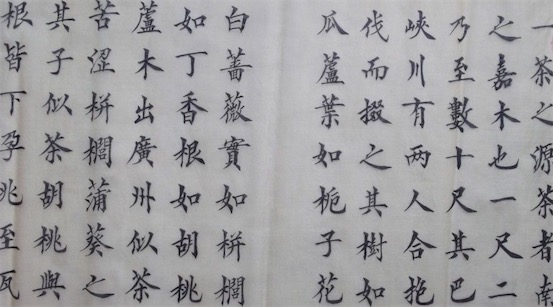 一茶之源茶者南
之嘉木也一尺二
乃至數十尺其巴
峽川有两人合抱
伐而掇之其樹如
瓜蘆葉如栀子花
白薔薇實如栟櫚
如丁香根如胡桃
蘆木出廣州似茶
苦涩栟櫚蒲葵之
其子似茶胡桃與
根皆下孕兆至瓦